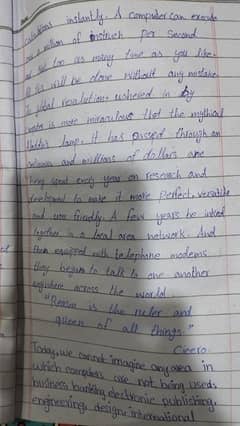 instantly. A computer can execute
a million of instruch per second
and that too as many time as you like.
all this will be done without any mistake
The global revolution ushered in by
computer is more miraculous that the mythical
lamp. It has passed through an
and millions of dollars are
being spent every year on research and
to make it more perfect, versatile
and user friendly. A few years be inked
together in a local area network. And
then equipped with telephone modems
they begun to talk to one another
anywhere across the world
"Reason is the ruler and
queen of all things."
Cicero
Today, we cannot imagine any area in
which computers are not being used,
business banking electronic publishing,
engineering, design international